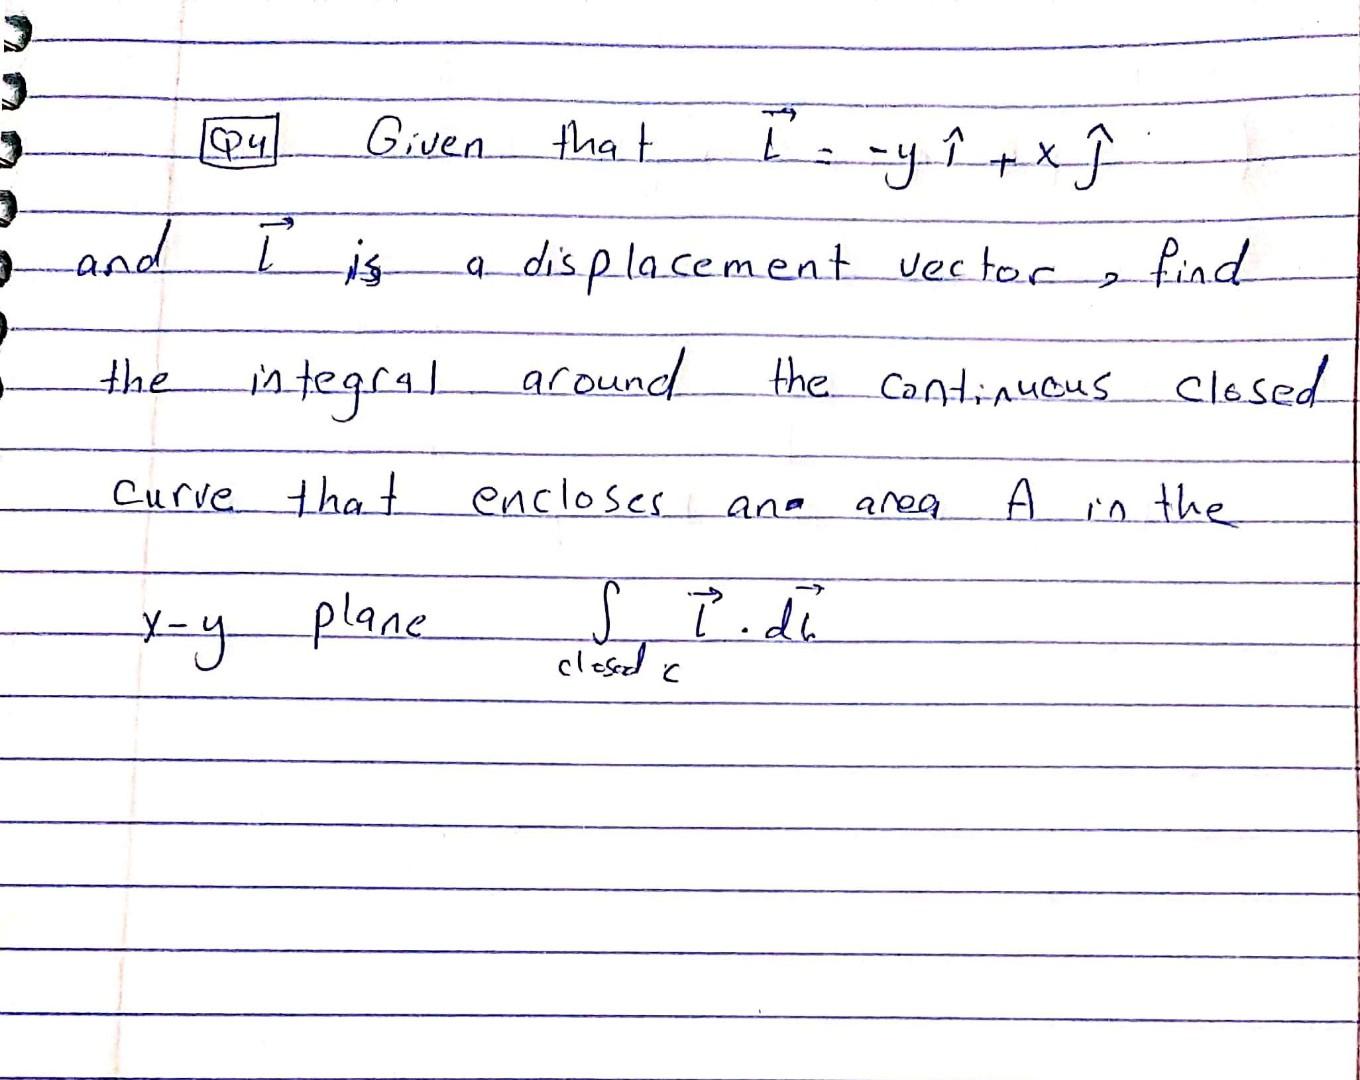 Q4 Given that L⃗ = -y î + x ĵ
and L⃗ is a displacement vector, find
the integral around the continuous closed
curve that encloses an area A in the
x-y plane ∫ L⃗ . dL⃗
closed c